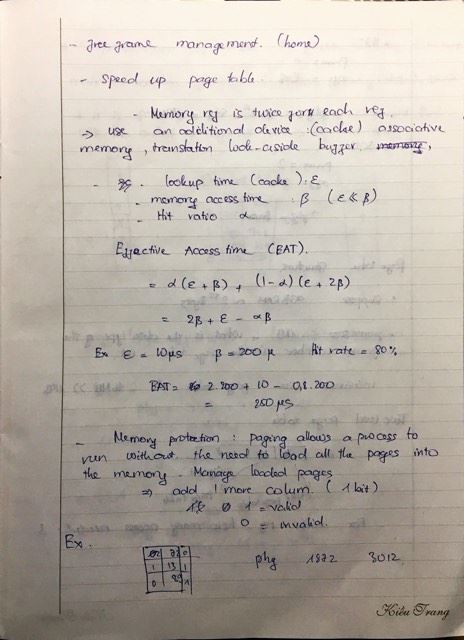 - free frame management. (home)
- speed up page table.
- Memory ref is twice for each ref.
⇒ use an additional device : (cache) associative
memory, translation look-aside buffer, memory,
- lookup time (cache) : ε
- memory access time : β (ε ≪ β)
- Hit ratio α
Effective Access time (EAT).
= α(ε + β) + (1-α)(ε + 2β)
= 2β + ε - αβ
Ex ε = 10μs β = 200 μ Hit rate = 80%
EAT = 2.200 + 10 - 0,8.200
= 250 μs
- Memory protection : paging allows a process to
run without the need to load all the pages into
the memory. Manage loaded pages
⇒ add 1 more colum. (1 bit)
1 = valid
0 = invalid.
Ex.
phg 1872 3012
1 13 1
0 20 1
Kiều Trang